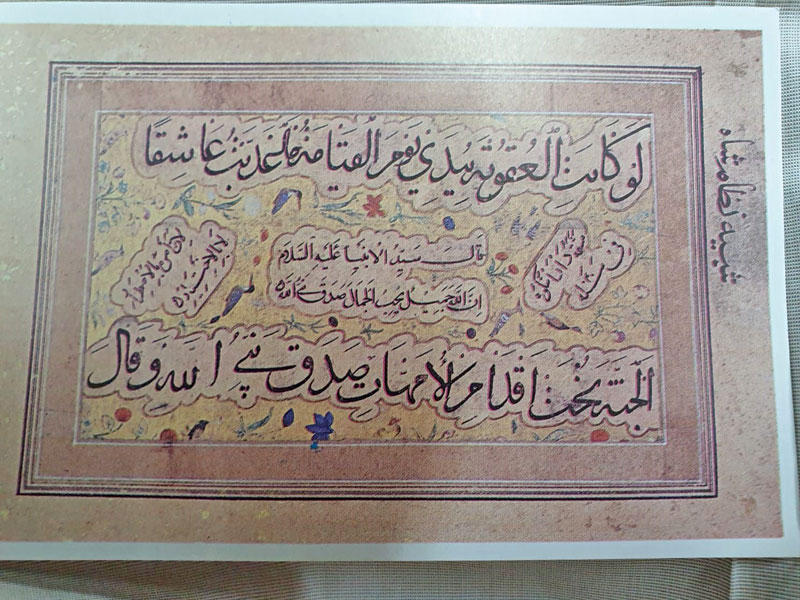 لو كانت العقوبة بيدي يوم القيامة عذبت عاشقا
قال سيد الانبيا عليه السلام
ان الله جميل يحب الجمال صدق الله
الجنة تحت اقدام الامهات صدق نبي الله وقال
شبيه نظام شاه